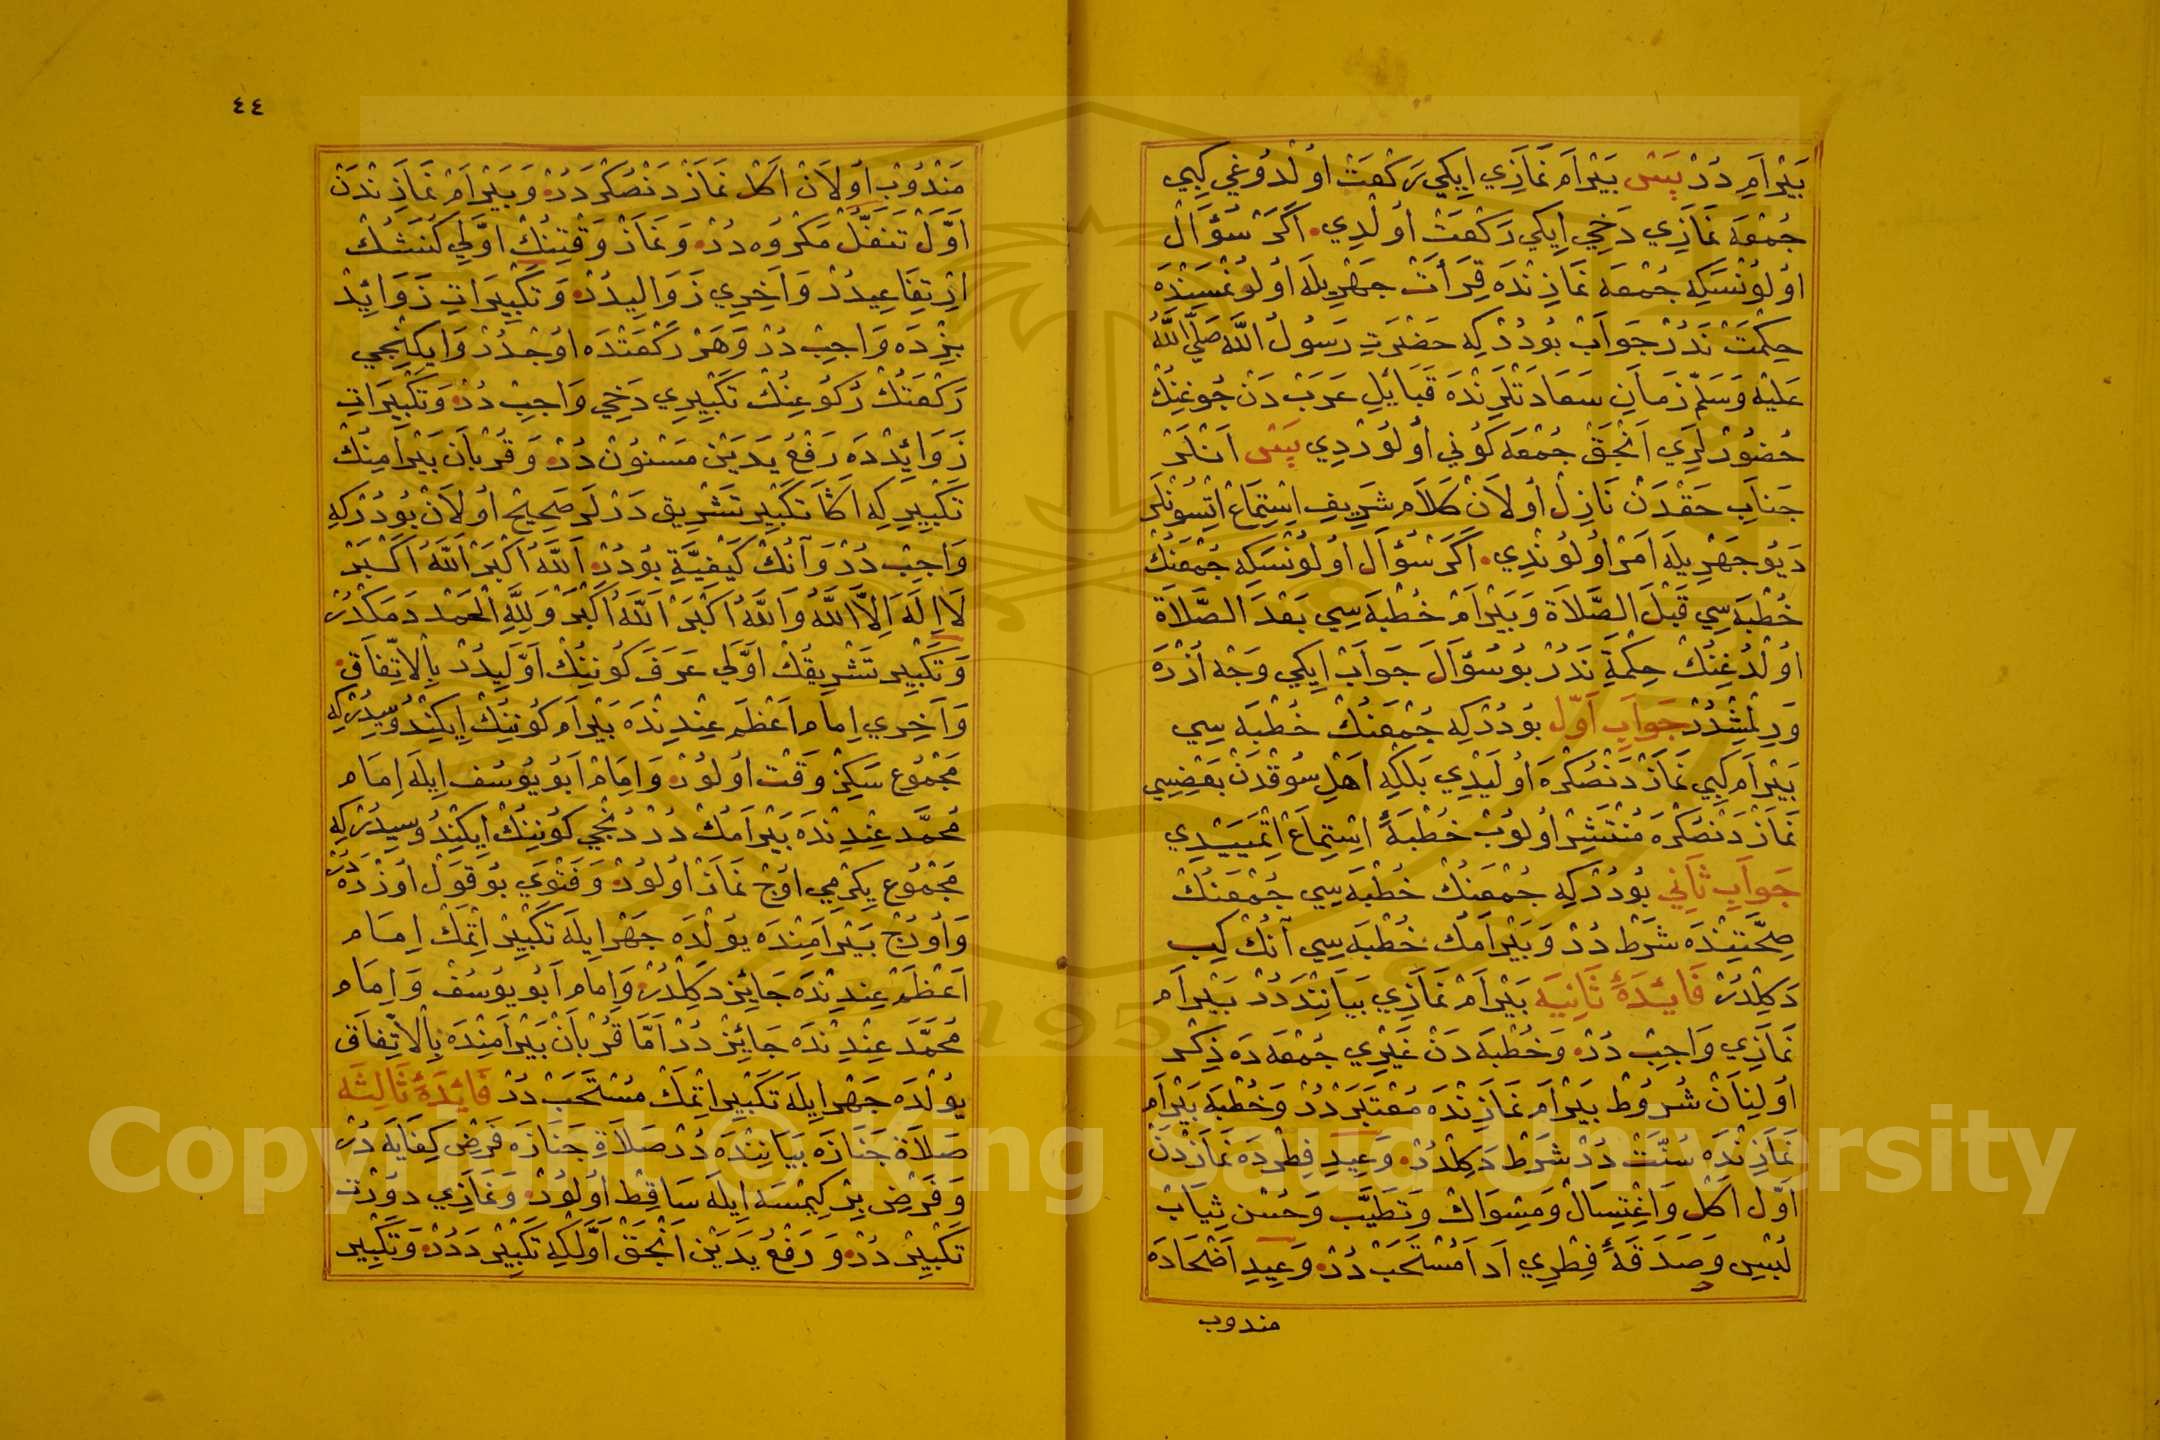 بَيْرَامِ دُرْ پَسْ بَيْرَام نَمَازِي اِيكِي رَكْعَتْ اوُلْدُوغِي كِبِي
جُمْعَه نَمَازِي دَخِي اِيكِي رَكْعَتْ اوُلْدِي. اَكَرْ سُؤَالْ
اوُلوُنْسَكِه جُمْعَه نَمَازِنْدَه قِرَأتْ جَهْرِيلَه اوُلوُنْمَسِنْدَه
حِكْمَتْ نَدُرْ جَوَابْ بُودُرْكِه حَضْرَتِ رَسُولُ اللّٰه صَلَّى اللّٰهُ
عَلَيْه وَسَلَّمْ زَمَانِ سَعَادَتْلَرِنْدَه قَبَايْلِ عَرَبْ دَنْ چُوغِنُكْ
حُضُورْلَرِي اَنْجَقْ جُمْعَه كُونِي اوُلوُرْدِي پَسْ اَنْلَرْ
جَنَابِ حَقْدَنْ نَازِلْ اوُلَانْ كَلَامِ شَرِيفِ اِسْتِمَاعْ اِتْسُونْلَر
دَيُو جَهْرِيلَه اَمْرْ اوُلوُنْدِي. اَكَرْ سُؤَالْ اوُلوُنْسَكِه جُمْعَنُكْ
خُطْبَه سِي قَبْلَ الصَّلَاة وَبَيْرَامْ خُطْبَه سِي بَعْدَ الصَّلَاة
اوُلْدُغِنُكْ حِكْمَةِ نَدُرْ بُو سُؤَالَ جَوَابْ اِيكِي وَجْه اُزْرَه
وَيرِلْمِشِدُرْ جَوَابِ اَوَّلْ بُودُرْكِه جُمْعَنُكْ خُطْبَه سِي
بَيْرَامْ كِبِي نَمَازْدَنْصُكْرَه اوُلَيْدِي بَلْكِه اَهْلِ سُوقْدَنْ بَعْضِيسِي
نَمَازْدَنْصُكْرَه مُنْتَشِرْ اوُلوُبْ خُطْبَهٔ اِسْتِمَاعْ اِتْمَيَيْدِي
جَوَابِ ثَانِي بُودُرْكِه جُمْعَنُكْ خُطْبَه سِي جُمْعَنُكْ
صِحَّتِنْدَه شَرْط دُرْ وَبَيْرَامُكْ خُطْبَه سِي اَنُكْ كِبِ
دَكِلْدُرْ فَائِدَهٔ ثَانِيَه بَيْرَامْ نَمَازِي بَيَانِنْدَدُرْ بَيْرَام
نَمَازِي وَاجِبْ دُرْ. وَخُطْبَه دَنْ غَيْرِي جُمْعَه دَه ذِكْر
اوُلِنَانْ شُرُوطْ بَيْرَام نَمَازِنْدَه مُعْتَبَرْدُرْ وَخُطْبَه بَيْرَام
نَمَازِنْدَه سُنَّتْ دُرْ شَرْط دَكِلْدُرْ. وَعِيدِ فِطْرْدَه نَمَازْدَنْ
اَوَّل اَكْلْ وَاغْتِسَالْ وَمِسْوَاكْ وَتَطَيُّب وَحُسْنِ ثِيَابْ
لُبْسِ وَصَدَقَهٔ فِطْرِي اَدَا مُسْتَحَبْ دُرْ. وَعِيدِ اَضْحَادَه
مندوب
٤٤
مَنْدُوبْ اوُلَانْ اَكْل نَمَازْدَنْصُكْرَدُرْ. وَبَيْرَامْ نَمَازِنْدَنْ
اَوَّلْ تَنَفُّلْ مَكْرُوه دُرْ. وَنَمَازْ وَقْتِنُكْ اَوَّلِي كُنَشُكْ
اِرْتِفَاعِيدُرْ وَاَخِرِي زَوَالِيدُرْ. وَتَكْبِيرَاتِ زَوَايِدْ
بِزْدَه وَاجِبْ دُرْ وَهَرْ رَكْعَتْدَه اوُچْدُرْ وَايكِنْجِي
رَكْعَتُكْ رُكُوعِنُكْ تَكْبِيرِي دَخِي وَاجِبْ دُرْ. وَتَكْبِيرَاتِ
زَوَائِدْدَه رَفْعُ يَدَيْن مَسْنُونْ دُرْ. وَقُرْبَانْ بَيْرَامِنُكْ
تَكْبِيرِكِه اَكَا تَكْبِيرِ تَشْرِيق دَرْلَر صَحِيحْ اوُلَانْ بُودُرْكِه
وَاجِبْ دُرْ وَاَنُكْ كَيْفِيَّةِ بُودُرْ. اَللّٰهُ اَكْبَرْ اَللّٰهُ اَكْبَرْ
لَا اِلٰهَ اِلَّا اللّٰهُ وَاللّٰهُ اَكْبَرْ اَللّٰهُ اَكْبَرْ وَلِلّٰهِ الْحَمْد دَمَكْدُرْ
وَتَكْبِيرِ تَشْرِيقُكْ اَوَّلِي عَرَفَه كُونِنُكْ اَوَّلِيدُرْ بِالْاِتِّفَاق.
وَاَخِرِي اِمَام اَعْظَم عِنْدِنْدَه بَيْرَام كُونِنُكْ اِيكِنْدُوسِيدُرْكِه
مَجْمُوعِ سَكِزْ وَقْت اوُلوُرْ. وَاِمَامْ اَبُو يُوسُف اِيلَه اِمَام
مُحَمَّد عِنْدِنْدَه بَيْرَامُكْ دُرْدُنْجِي كُونِنُكْ اِيكِنْدُوسِيدُرْكِه
مَجْمُوعِ يِكِرْمِي اوُچْ نَمَازْ اوُلوُرْ. وَفَتْوَى بُو قَوْلْ اوُزْرَدُرْ
وَاوُرُجْ بَيْرَامِنْدَه يوُلْدَه جَهْرَ اِيلَه تَكْبِيرْ اِتْمَكْ اِمَام
اَعْظَمْ عِنْدِنْدَه جَائِز دَكِلْدُرْ. وَاِمَام اَبُو يُوسُفْ وَاِمَام
مُحَمَّد عِنْدِنْدَه جَائِزْدُرْ اَمَّا قُرْبَانْ بَيْرَامِنْدَه بِالْاِتِّفَاق
يوُلْدَه جَهْرَ اِيلَه تَكْبِيرْ اِتْمَكْ مُسْتَحَبْ دُرْ فَائِدَهٔ ثَالِثَه
صَلَاةِ جَنَازَه بَيَانِنْدَه دُرْ صَلَاةِ جَنَازَه فَرْضِ كِفَايَه دُرْ
وَفَرْضِ بِرْ كِيمْسَه اِيلَه سَاقِطْ اوُلوُرْ. وَنَمَازِي دُورْت
تَكْبِيرْ دُرْ. وَ رَفْعُ يَدَيْن اَنْجَقْ اَوَّلْكِه تَكْبِيرْدَدُرْ. وَتَكْبِير
Copyright © King Saud University
1957